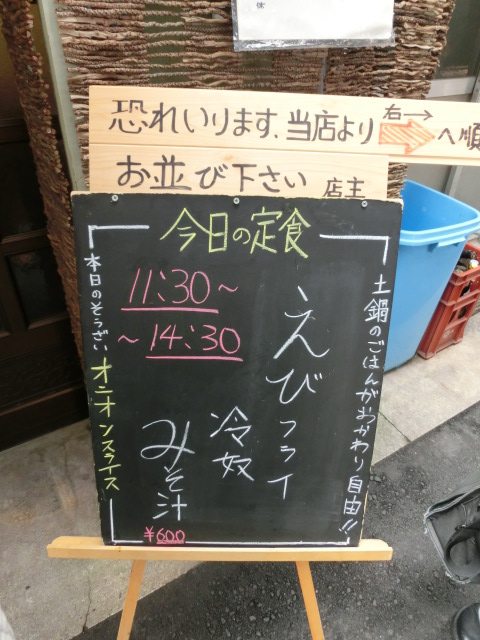 休
恐れいります、当店より 右→ へ順
お並び下さい 店主
今日の定食
11:30～
～14:30
土鍋のごはんがおかわり自由!!
えびフライ
冷奴
みそ汁
¥600
本日のそうざい オニオンスライス